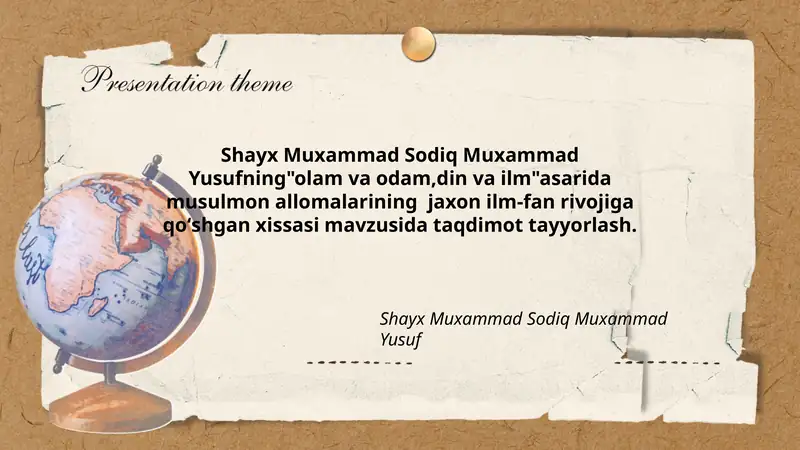 Presentation theme
Shayx Muxammad Sodiq Muxammad
Yusufning"olam va odam,din va ilm"asarida
musulmon allomalarining jaxon ilm-fan rivojiga
qo‘shgan xissasi mavzusida taqdimot tayyorlash.
Shayx Muxammad Sodiq Muxammad
Yusuf